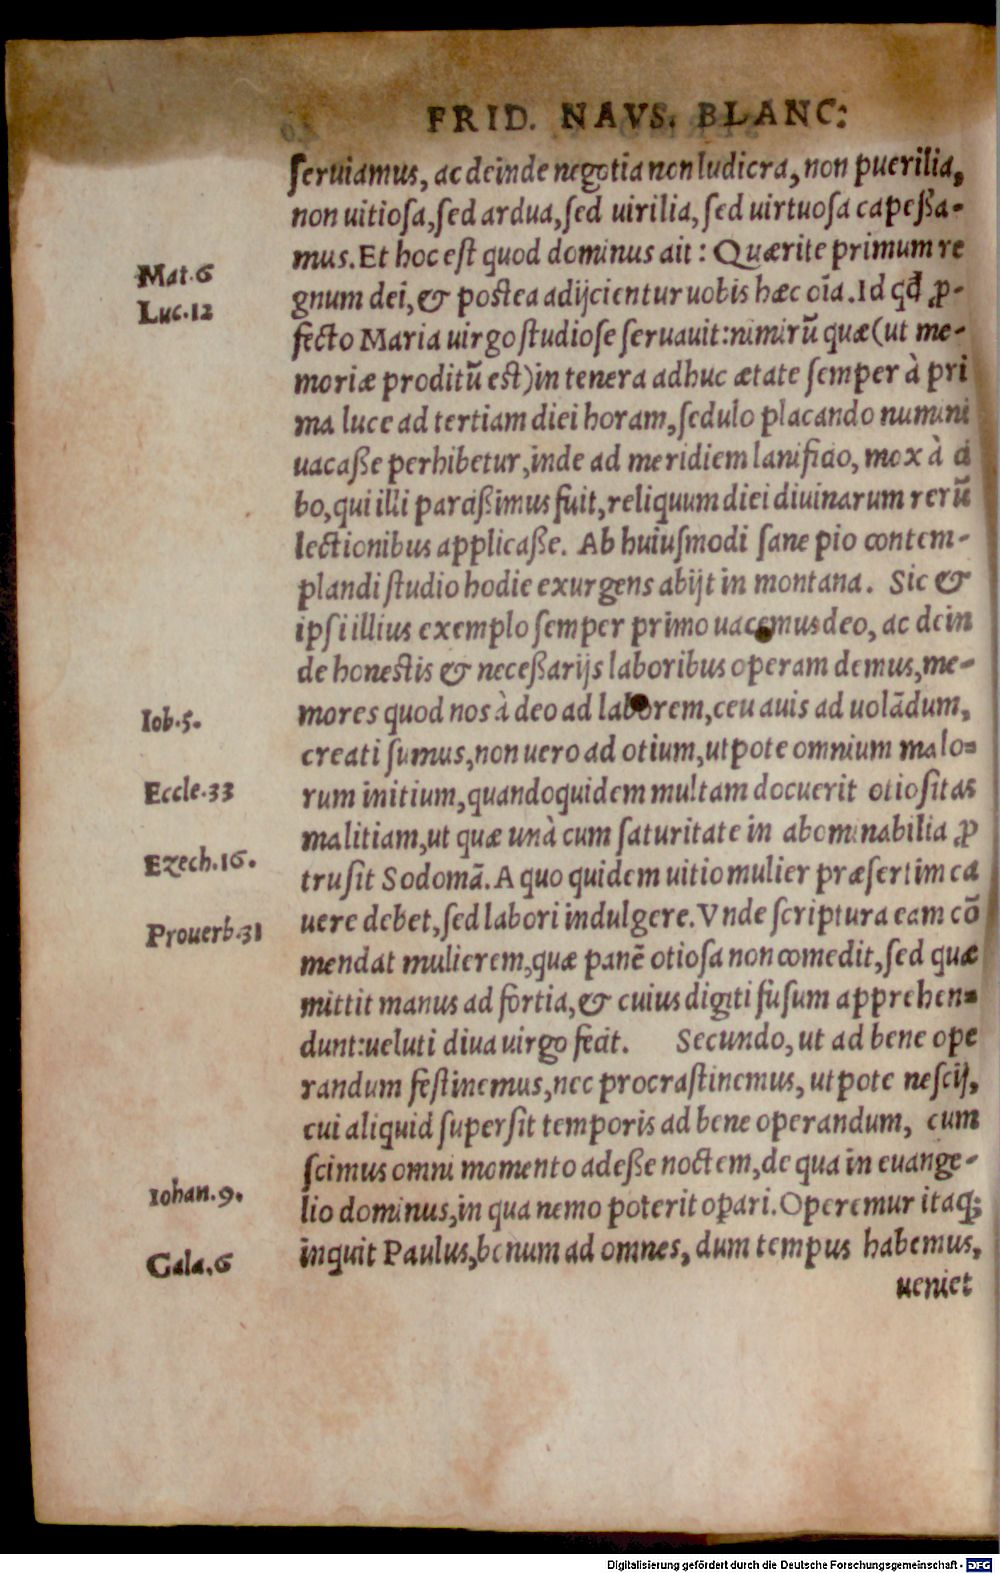 FRID. NAVS. BLANC:
ſeruiamus, ac deinde negotia non ludicra, non puerilia,
non uitioſa, ſed ardua, ſed uirilia, ſed uirtuoſa capeßa-
mus. Et hoc eſt quod dominus ait : Quærite primum re
Mat.6
gnum dei, & poſtea adijcientur uobis hæc oīa. Id qđ ꝓ-
Luc.12
fecto Maria uirgo ſtudioſe ſeruauit: nimirū quæ (ut me-
moriæ proditū eſt) in tenera adhuc ætate ſemper à pri
ma luce ad tertiam diei horam, ſedulo placando numini
uacaße perhibetur, inde ad meridiem lanificio, mox à ci
bo, qui illi parcißimus fuit, reliquum diei diuinarum rerū
lectionibus applicaße. Ab huiuſmodi ſane pio contem-
plandi ſtudio hodie exurgens abijt in montana. Sic &
ipſi illius exemplo ſemper primo uacemus deo, ac dein
de honeſtis & neceßarijs laboribus operam demus, me-
mores quod nos à deo ad laborem, ceu auis ad uolādum,
Iob.5.
creati ſumus, non uero ad otium, utpote omnium malo-
rum initium, quandoquidem multam docuerit otioſitas
Eccle.33
malitiam, ut quæ unà cum ſaturitate in abominabilia ꝓ
truſit Sodomā. A quo quidem uitio mulier præſertim ca
Ezech.16.
uere debet, ſed labori indulgere. Vnde ſcriptura eam cō
Prouerb.31
mendat mulierem, quæ panē otioſa non comedit, ſed quæ
mittit manus ad fortia, & cuius digiti fuſum apprehen-
dunt: ueluti diua uirgo fecit. Secundo, ut ad bene ope
randum feſtinemus, nec procraſtinemus, utpote neſcij,
cui aliquid ſuperſit temporis ad bene operandum, cum
ſcimus omni momento adeße noctem, de qua in euange-
lio dominus, in qua nemo poterit oꝑari. Operemur itaq;
Iohan.9.
inquit Paulus, bonum ad omnes, dum tempus habemus,
Gala.6
ueniet
Digitalisierung gefördert durch die Deutsche Forschungsgemeinschaft - DFG